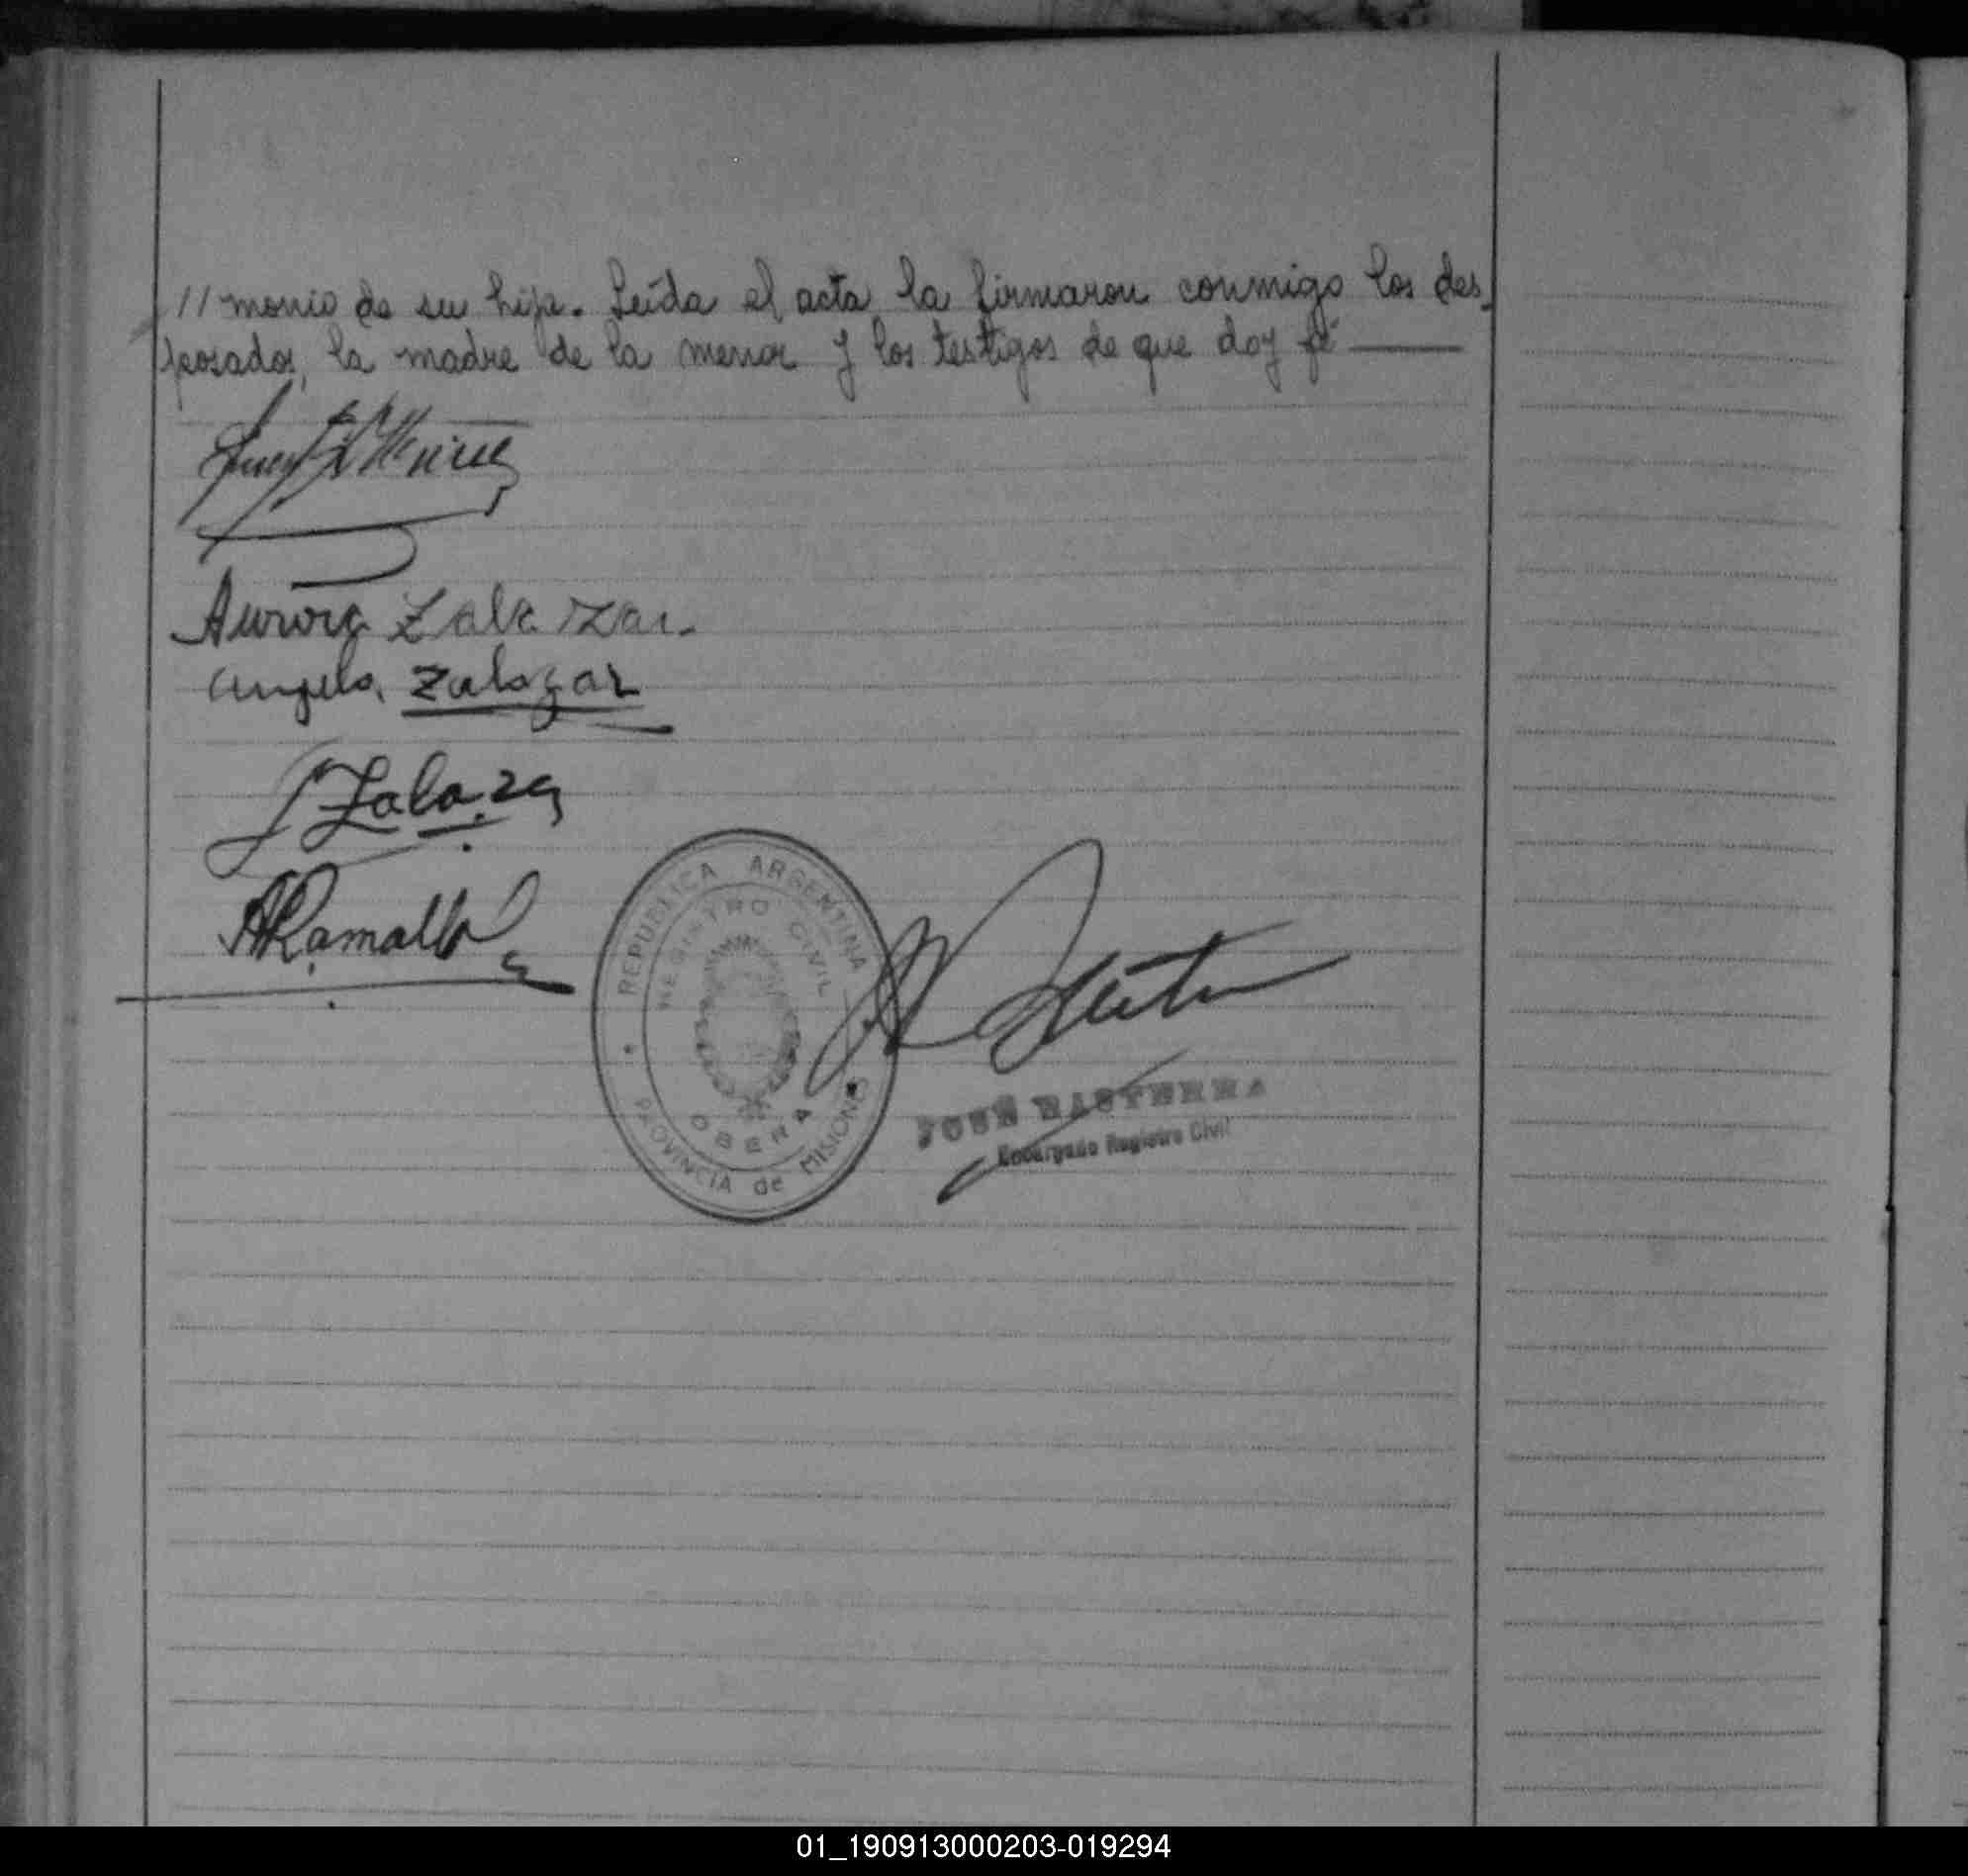 // monio de su hija. Leída el acta, la firmaron conmigo los des-
posados, la madre de la menor y los testigos de que doy fé
Aurora Zalazar.
Angela Zalazar
Zalazar
ARamallo
REPUBLICA ARGENTINA
REGISTRO CIVIL
OBERA
PROVINCIA de MISIONES
JOSÉ BASTERRA
Encargado Registro Civil
01_190913000203-019294